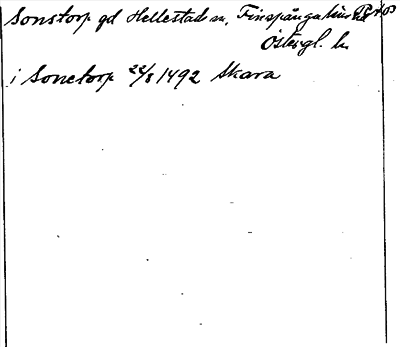 Sonstorp gd Hellestads sn, Finspånga län
Östergl. l.
i Sonetorp 22/8 1492 Skara